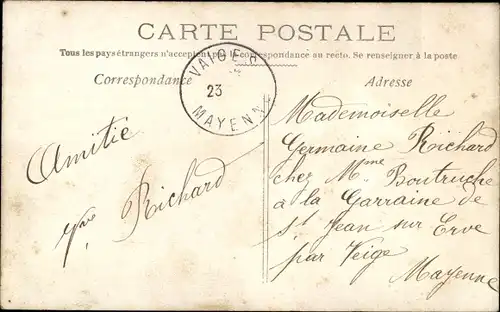 CARTE POSTALE
Tous les pays étrangers n'acceptent pas la correspondance au recto. Se renseigner à la poste
Correspondance
Adresse
VAIGES
23
MAYENNE
Amitie
Yve Richard
Mademoiselle
Germaine Richard
chez Mme Boutruche
a la Garraine de
St Jean sur Erve
par Veige
Mayenne